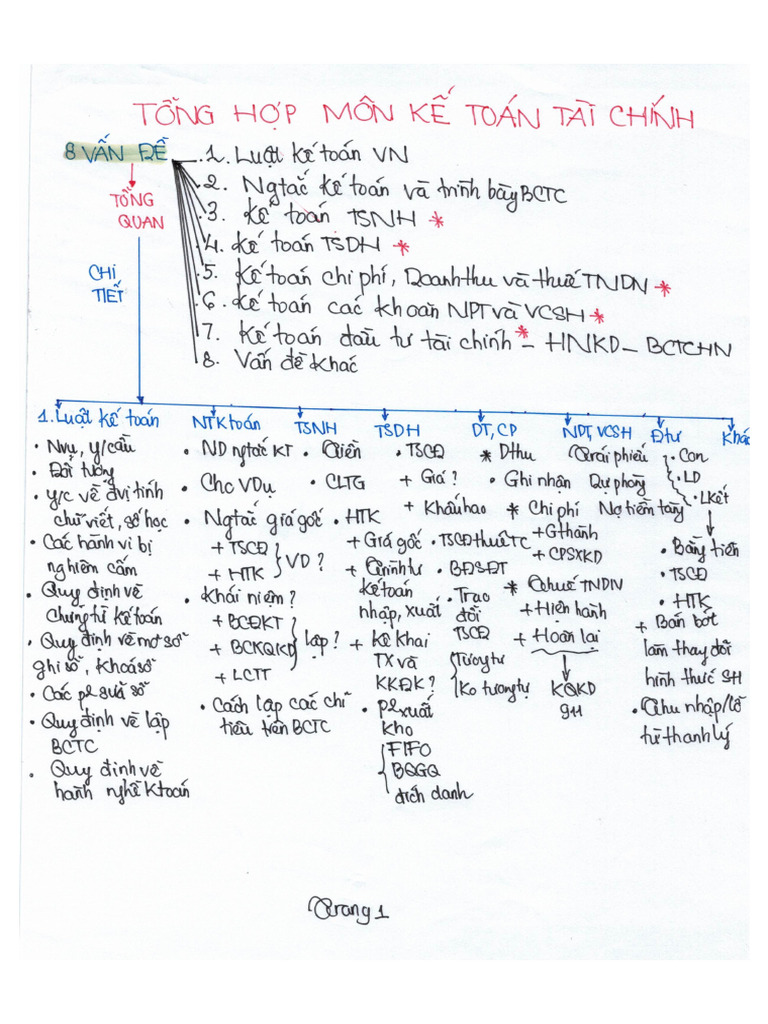 TỔNG HỢP MÔN KẾ TOÁN TÀI CHÍNH
8 VẤN ĐỀ
TỔNG QUAN
CHI TIẾT
1. Luật kế toán VN
2. Ngtắc kế toán và trình bày BCTC
3. Kế toán TSNH *
4. Kế toán TSDH *
5. Kế toán chi phí, Doanh thu và thuế TNDN *
6. Kế toán các khoản NPT và VCSH *
7. Kế toán đầu tư tài chính * - HNKD - BCTCHN
8. Vấn đề khác
1. Luật kế toán
• Nvụ, y/cầu
• Đối tượng
• y/c về đvị tính
chữ viết, số học
• Các hành vi bị
nghiêm cấm
• Quy định về
chứng từ kế toán
• Quy định về mở sổ
ghi sổ, khoá sổ
• Các pp sửa sổ
• Quy định về lập
BCTC
• Quy định về
hành nghề ktoán
NTKtoán
• ND ngtắc KT
• Cho VDụ
• Ngtắc giá gốc
+ TSCĐ
+ HTK
VD ?
• Khái niệm ?
+ BCĐKT
+ BCKQKD
+ LCTT
lập ?
• Cách lập các chỉ
tiêu trên BCTC
TSNH
• Tiền
• CLTG
• HTK
+ Giá gốc
+ Trình tự
kế toán
nhập, xuất
+ Kê khai
TX và
KKĐK ?
• PP xuất
kho
FIFO
BQGQ
đích danh
TSDH
• TSCĐ
+ Giá ?
+ Khấu hao
• TSCĐ thuê TC
• BĐSĐT
• Trao
đổi
TSCĐ
Tương tự
Ko tương tự
DT, CP
* Dthu
• Ghi nhận
* Chi phí
+ Gthành
+ CPSXKD
* Thuế TNDN
+ Hiện hành
+ Hoãn lại
KQKD
911
NPT, VCSH
Trái phiếu
Dự phòng
Nợ tiềm tàng
Đtư
• Con
• LD
• Lkết
• Bằng tiền
• TSCĐ
• HTK
+ Bán bớt
làm thay đổi
hình thức SH
• Thu nhập/lỗ
từ thanh lý
Khác
Trang 1